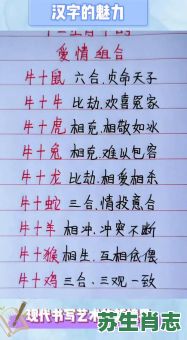 汉字的魅力
爱情组合
牛+鼠 六合.贞命天子
牛+牛 比劫.欢喜冤家
牛+虎 相克.相敬如冰
牛+兔 相克.难以包容
牛+龙 比劫.相爱相杀
牛+蛇 三合.情投意合
牛+羊 相冲.冲突不断
牛+猴 相生.互相依偎
牛+鸡 三合.三观一致
现代书写艺术
苏生肖志